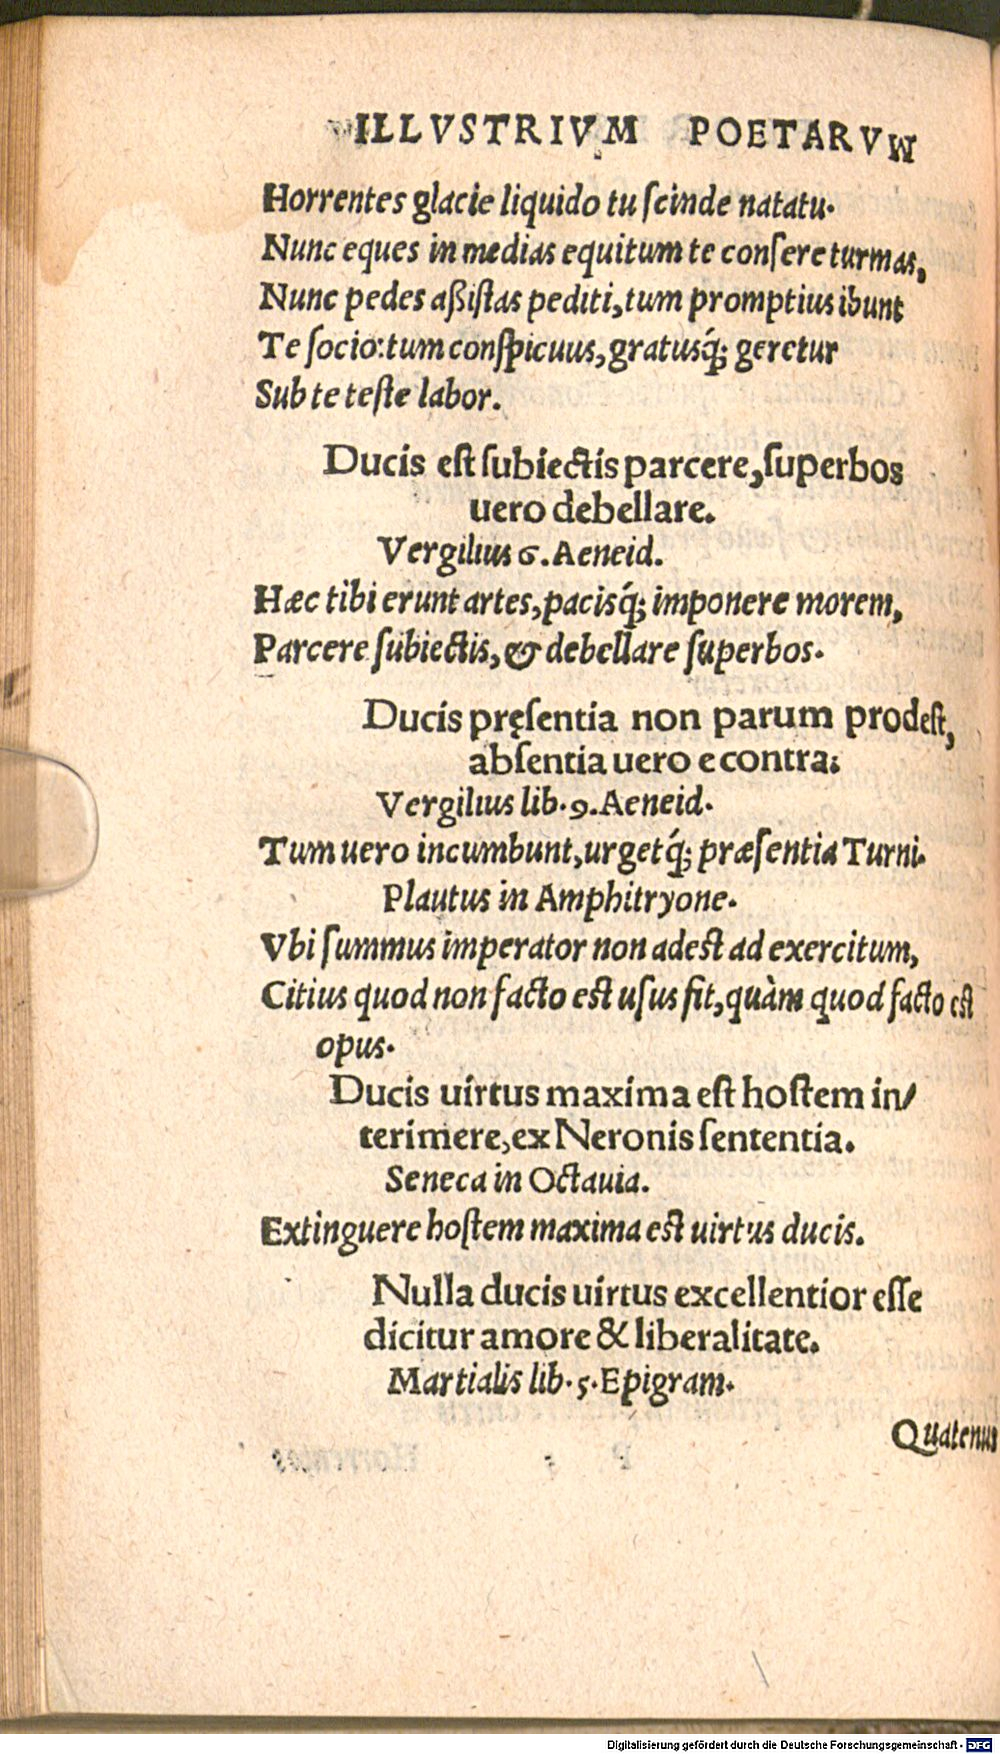 ILLVSTRIVM POETARVM
Horrentes glacie liquido tu ſcinde natatu.
Nunc eques in medias equitum te conſere turmas,
Nunc pedes aßiſtas pediti, tum promptius ibunt
Te ſocio: tum conſpicuus, gratusq́; geretur
Sub te teſte labor.
Ducis eſt ſubiectis parcere, ſuperbos
uero debellare.
Vergilius 6. Aeneid.
Hæc tibi erunt artes, pacisq́; imponere morem,
Parcere ſubiectis, & debellare ſuperbos.
Ducis pręſentia non parum prodeſt,
abſentia uero e contra:
Vergilius lib. 9. Aeneid.
Tum uero incumbunt, urgetq́; præſentia Turni.
Plautus in Amphitryone.
Vbi ſummus imperator non adeſt ad exercitum,
Citius quod non facto eſt uſus fit, quàm quod facto eſt
opus.
Ducis uirtus maxima eſt hoſtem in/
terimere, ex Neronis ſententia.
Seneca in Octauia.
Extinguere hoſtem maxima eſt uirtus ducis.
Nulla ducis uirtus excellentior eſſe
dicitur amore & liberalitate.
Martialis lib. 5. Epigram.
Quatenus
Digitalisierung gefördert durch die Deutsche Forschungsgemeinschaft - DFG